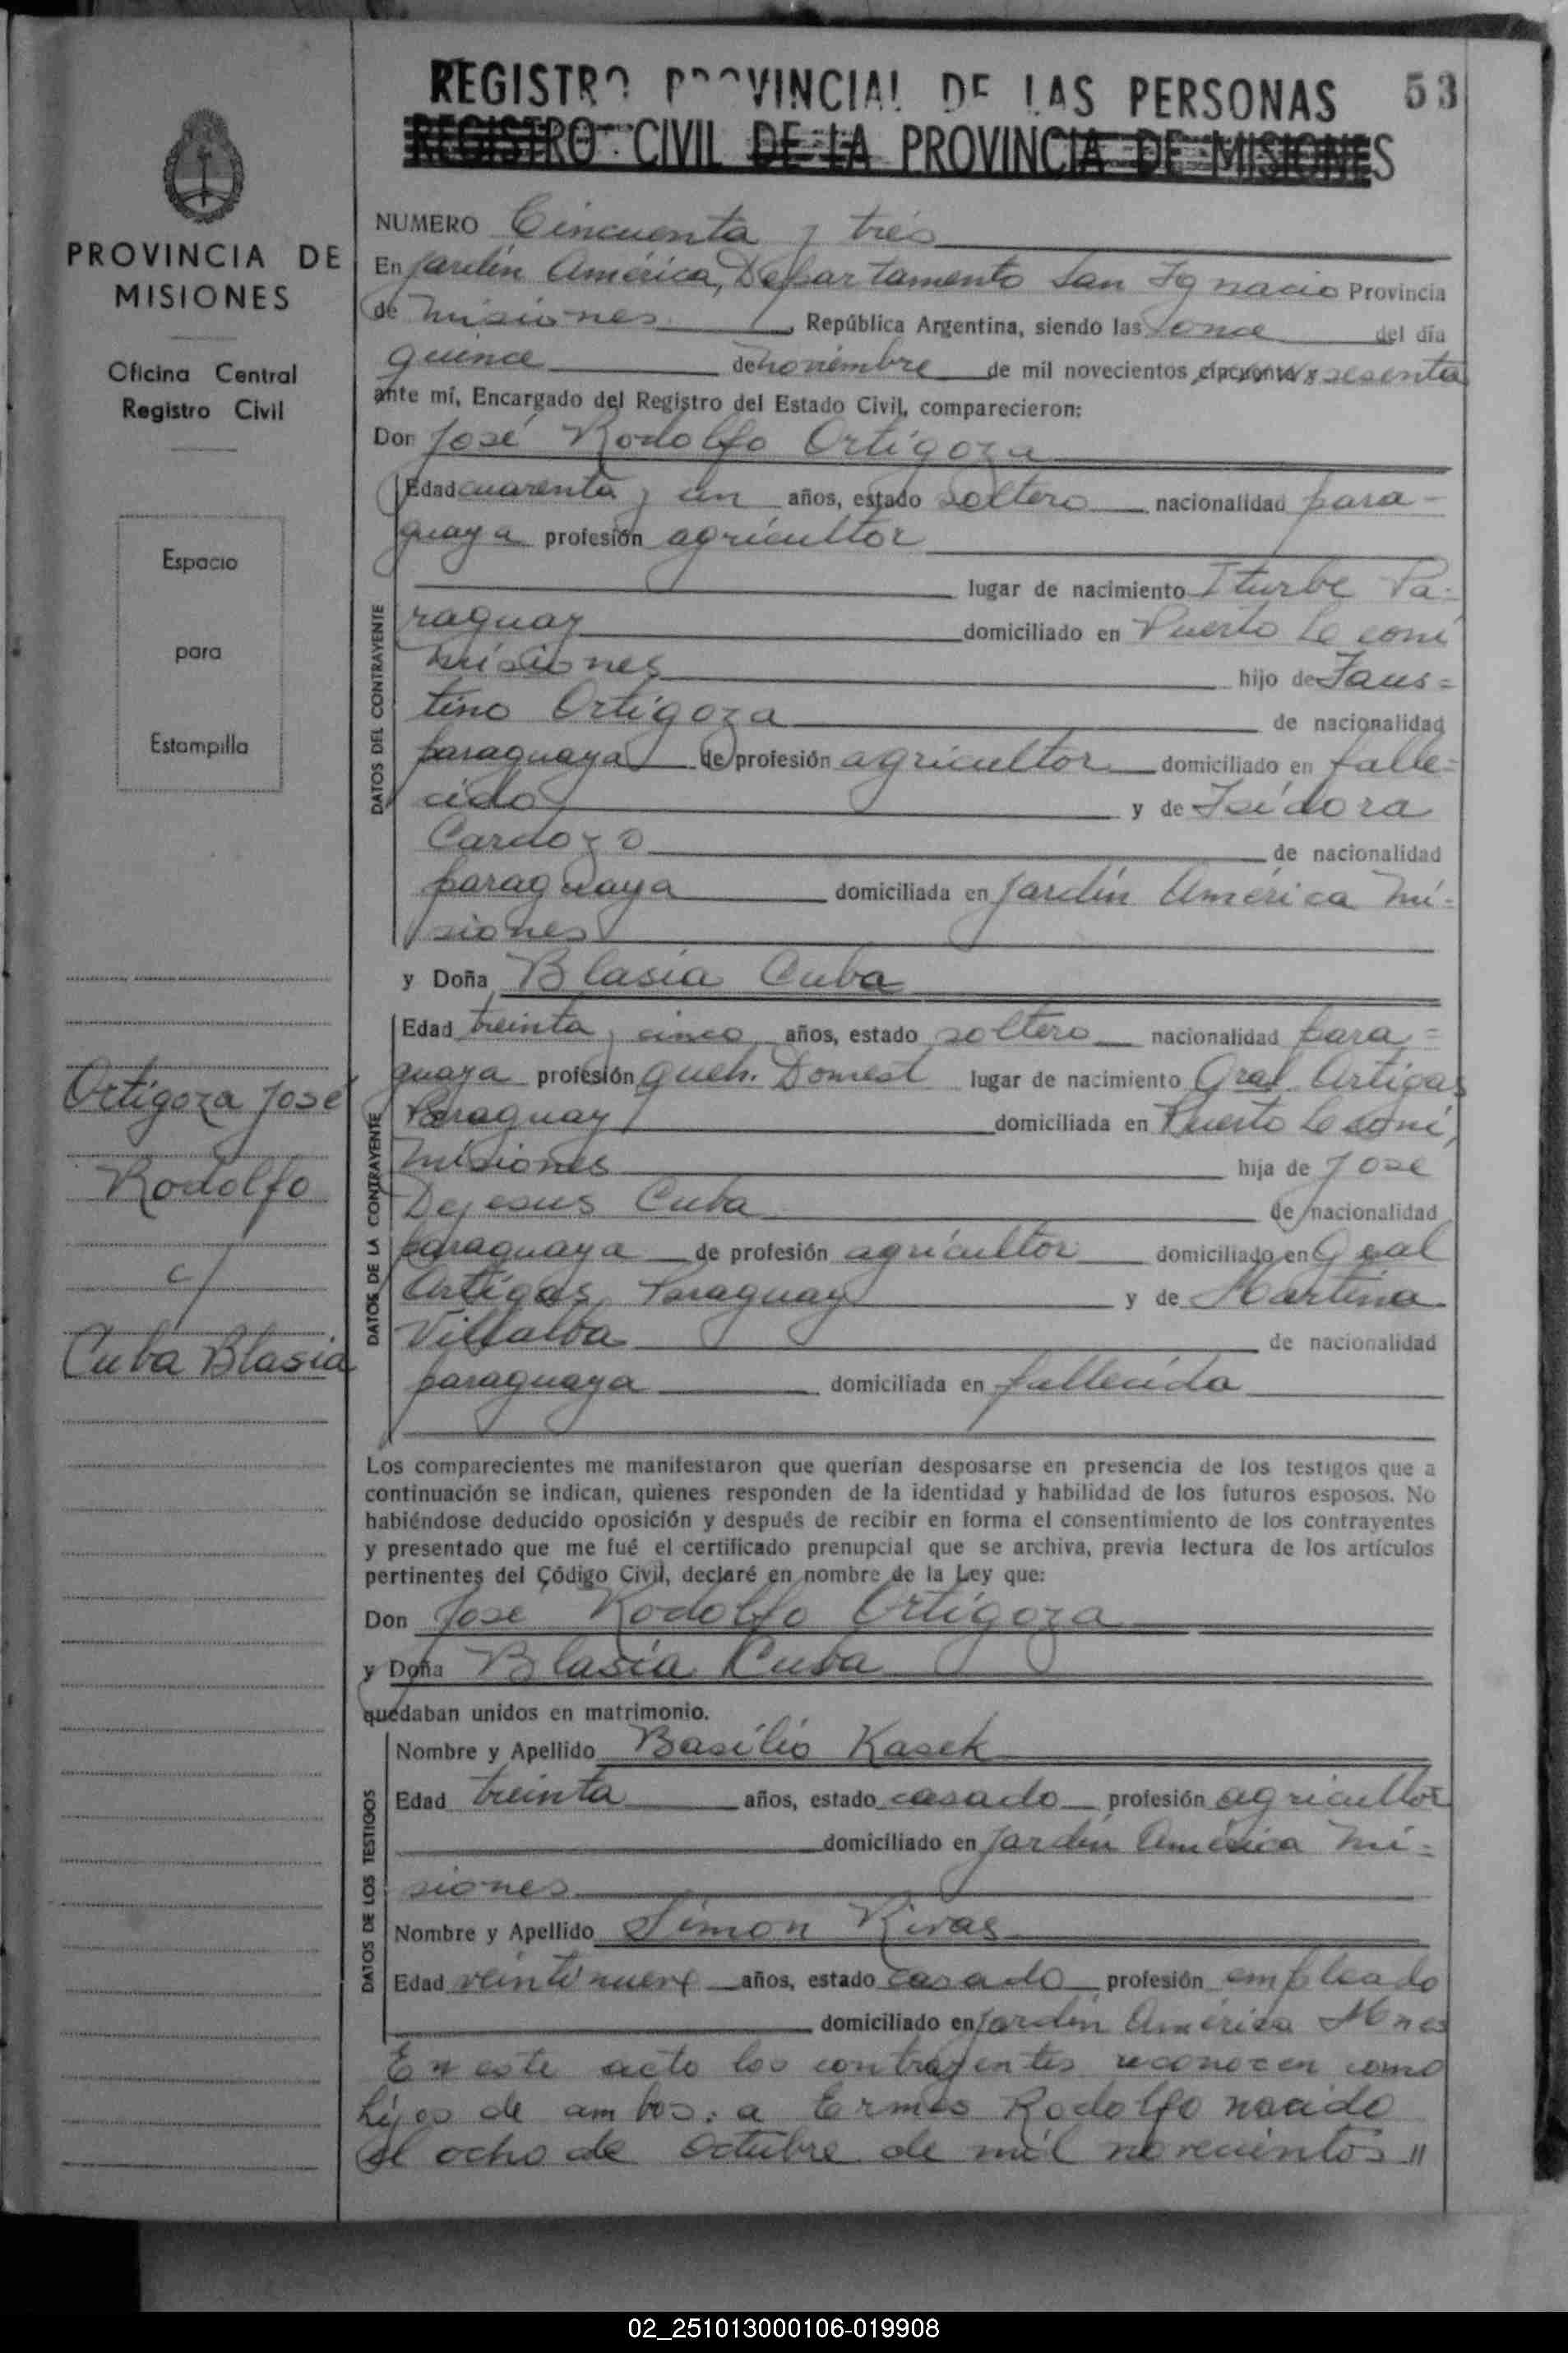 REGISTRO PROVINCIAL DE LAS PERSONAS 53
REGISTRO CIVIL DE LA PROVINCIA DE MISIONES
PROVINCIA DE
MISIONES
Oficina Central
Registro Civil
Espacio
para
Estampilla
Ortigoza José
Rodolfo
c/
Cuba Blasia
NUMERO Cincuenta y tres
En Jardín América, Departamento San Ignacio Provincia
de Misiones, República Argentina, siendo las once del día
quince de noviembre de mil novecientos sesenta
ante mí, Encargado del Registro del Estado Civil, comparecieron:
Don José Rodolfo Ortigoza
DATOS DEL CONTRAYENTE
Edad cuarenta y un años, estado soltero nacionalidad para-
guaya profesión agricultor
lugar de nacimiento Iturbe Pa-
raguay domiciliado en Puerto Leoni
Misiones hijo de Faus=
tino Ortigoza de nacionalidad
paraguaya de profesión agricultor domiciliado en falle=
cido y de Isidora
Cardozo de nacionalidad
paraguaya domiciliada en Jardín América Mi-
siones
y Doña Blasia Cuba
DATOS DE LA CONTRAYENTE
Edad treinta y cinco años, estado soltera nacionalidad para=
guaya profesión Queh. Domest lugar de nacimiento Gral Artigas
Paraguay domiciliada en Puerto Leoni,
Misiones hija de José
Dejesus Cuba de nacionalidad
paraguaya de profesión agricultor domiciliado en Gral
Artigas, Paraguay y de Martina
Villalba de nacionalidad
paraguaya domiciliada en fallecida
Los comparecientes me manifestaron que querían desposarse en presencia de los testigos que a
continuación se indican, quienes responden de la identidad y habilidad de los futuros esposos. No
habiéndose deducido oposición y después de recibir en forma el consentimiento de los contrayentes
y presentado que me fué el certificado prenupcial que se archiva, previa lectura de los artículos
pertinentes del Código Civil, declaré en nombre de la Ley que:
Don José Rodolfo Ortigoza
y Doña Blasia Cuba
quedaban unidos en matrimonio.
DATOS DE LOS TESTIGOS
Nombre y Apellido Basilio Kasek
Edad treinta años, estado casado profesión agricultor
domiciliado en Jardín América Mi=
siones
Nombre y Apellido Simon Rivas
Edad veintinueve años, estado casado profesión empleado
domiciliado en Jardín América Mnes
En este acto los contrayentes reconocen como
hijos de ambos: a Ermes Rodolfo nacido
el ocho de octubre de mil novecientos "
02_251013000106-019908